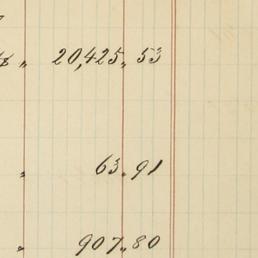 " 20,425.53
" 63.91
" 907.80